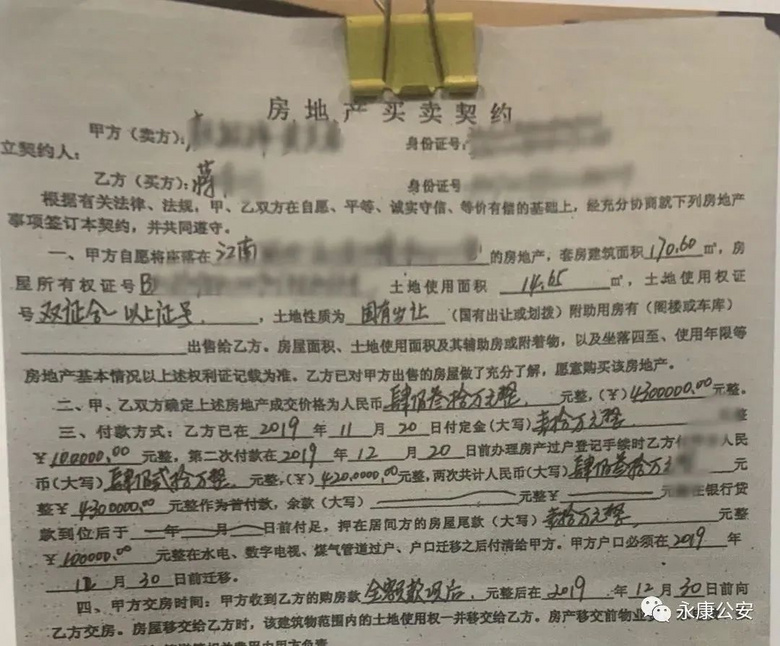 房地产买卖契约
甲方（卖方）： 身份证号：
立契约人：
乙方（买方）：蒋 身份证号
根据有关法律、法规，甲、乙双方在自愿、平等、诚实守信、等价有偿的基础上，经充分协商就下列房地产
事项签订本契约，并共同遵守。
一、甲方自愿将座落在江南 的房地产，套房建筑面积170.60㎡，房
屋所有权证号B 土地使用面积 14.65 ㎡，土地使用权证
号双证合一以上证号，土地性质为国有出让（国有出让或划拨）附助用房有（阁楼或车库）
出售给乙方。房屋面积、土地使用面积及其辅助房或附着物，以及坐落四至、使用年限等
房地产基本情况以上述权利证记载为准。乙方已对甲方出售的房屋做了充分了解，愿意购买该房地产。
二、甲、乙双方确定上述房地产成交价格为人民币肆佰叁拾万元整，元整，（￥）4300000.00元整。
三、付款方式：乙方已在2019年11月20日付定金（大写）壹拾万元整 整
￥100000.00元整，第二次付款在2019年12月20日前办理房产过户登记手续时乙方 人民
币（大写）肆佰贰拾万整 元整，（￥）4200000.00元整，两次共计人民币（大写）肆佰叁拾万 元
整￥4300000.00元整作为首付款，余款（大写） 元整￥ 元 在银行贷
款到位后于 年 月 日前付足，押在居间方的房屋尾款（大写）壹拾万元整 元整
￥100000.00元整在水电、数字电视、煤气管道过户、户口迁移之后付清给甲方。甲方户口必须在2019年
12月30日前迁移。
四、甲方交房时间：甲方收到乙方的购房款全额款项后，元整后在2019年12月30日前向
乙方交房。房屋移交给乙方时，该建筑物范围内的土地使用权一并移交给乙方。房产移交前物业
永康公安